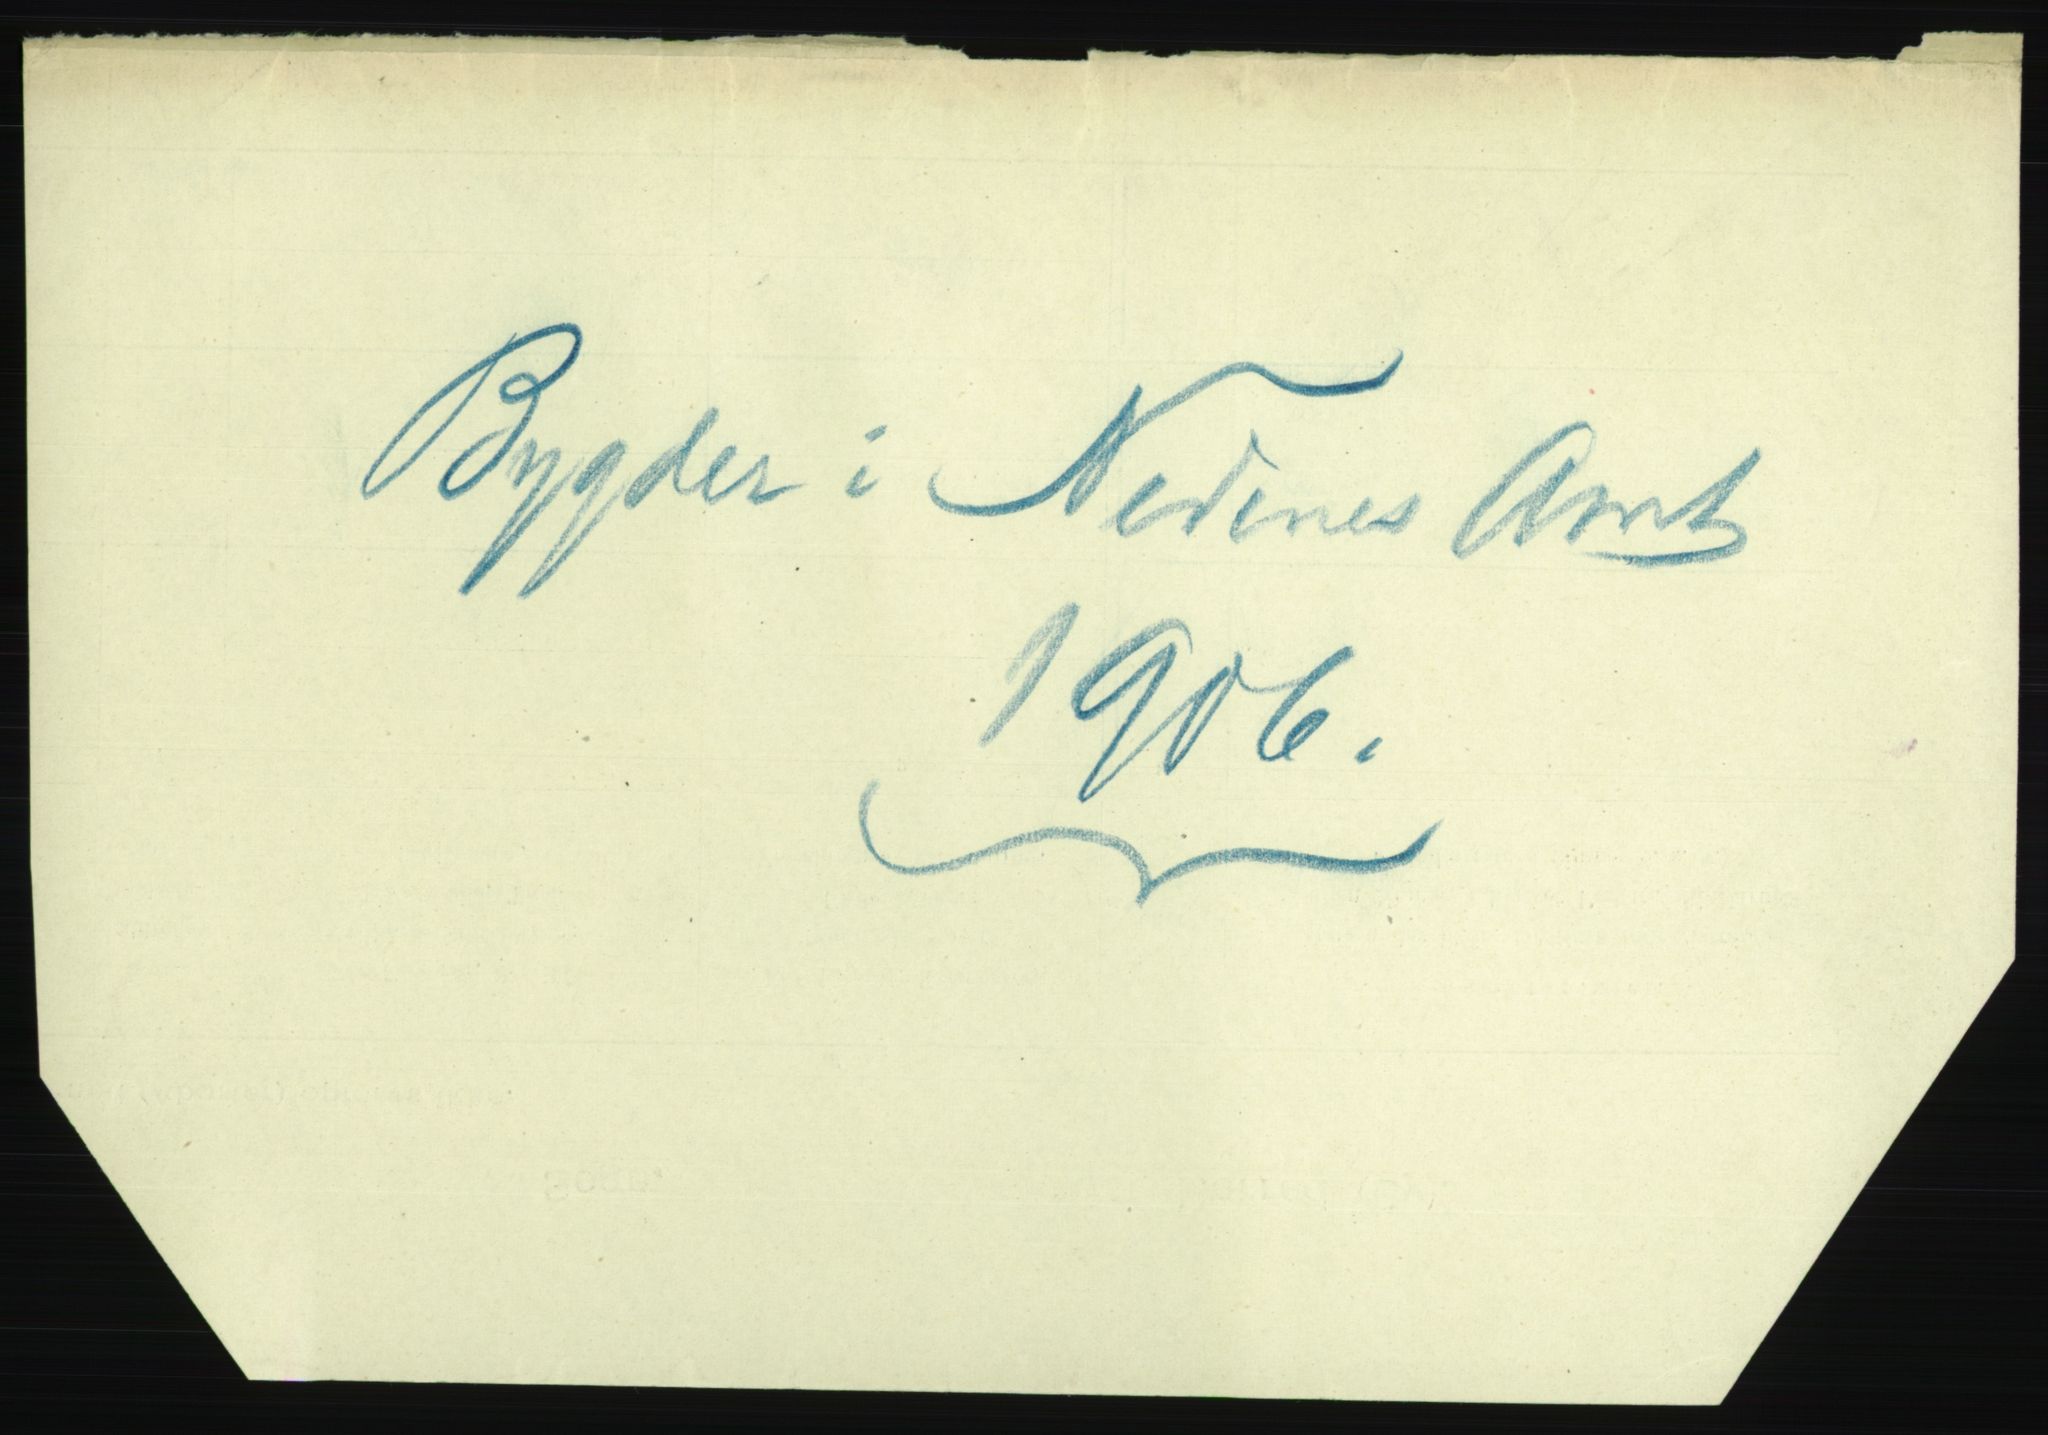 Bygder i Nedenes Amt
1906.